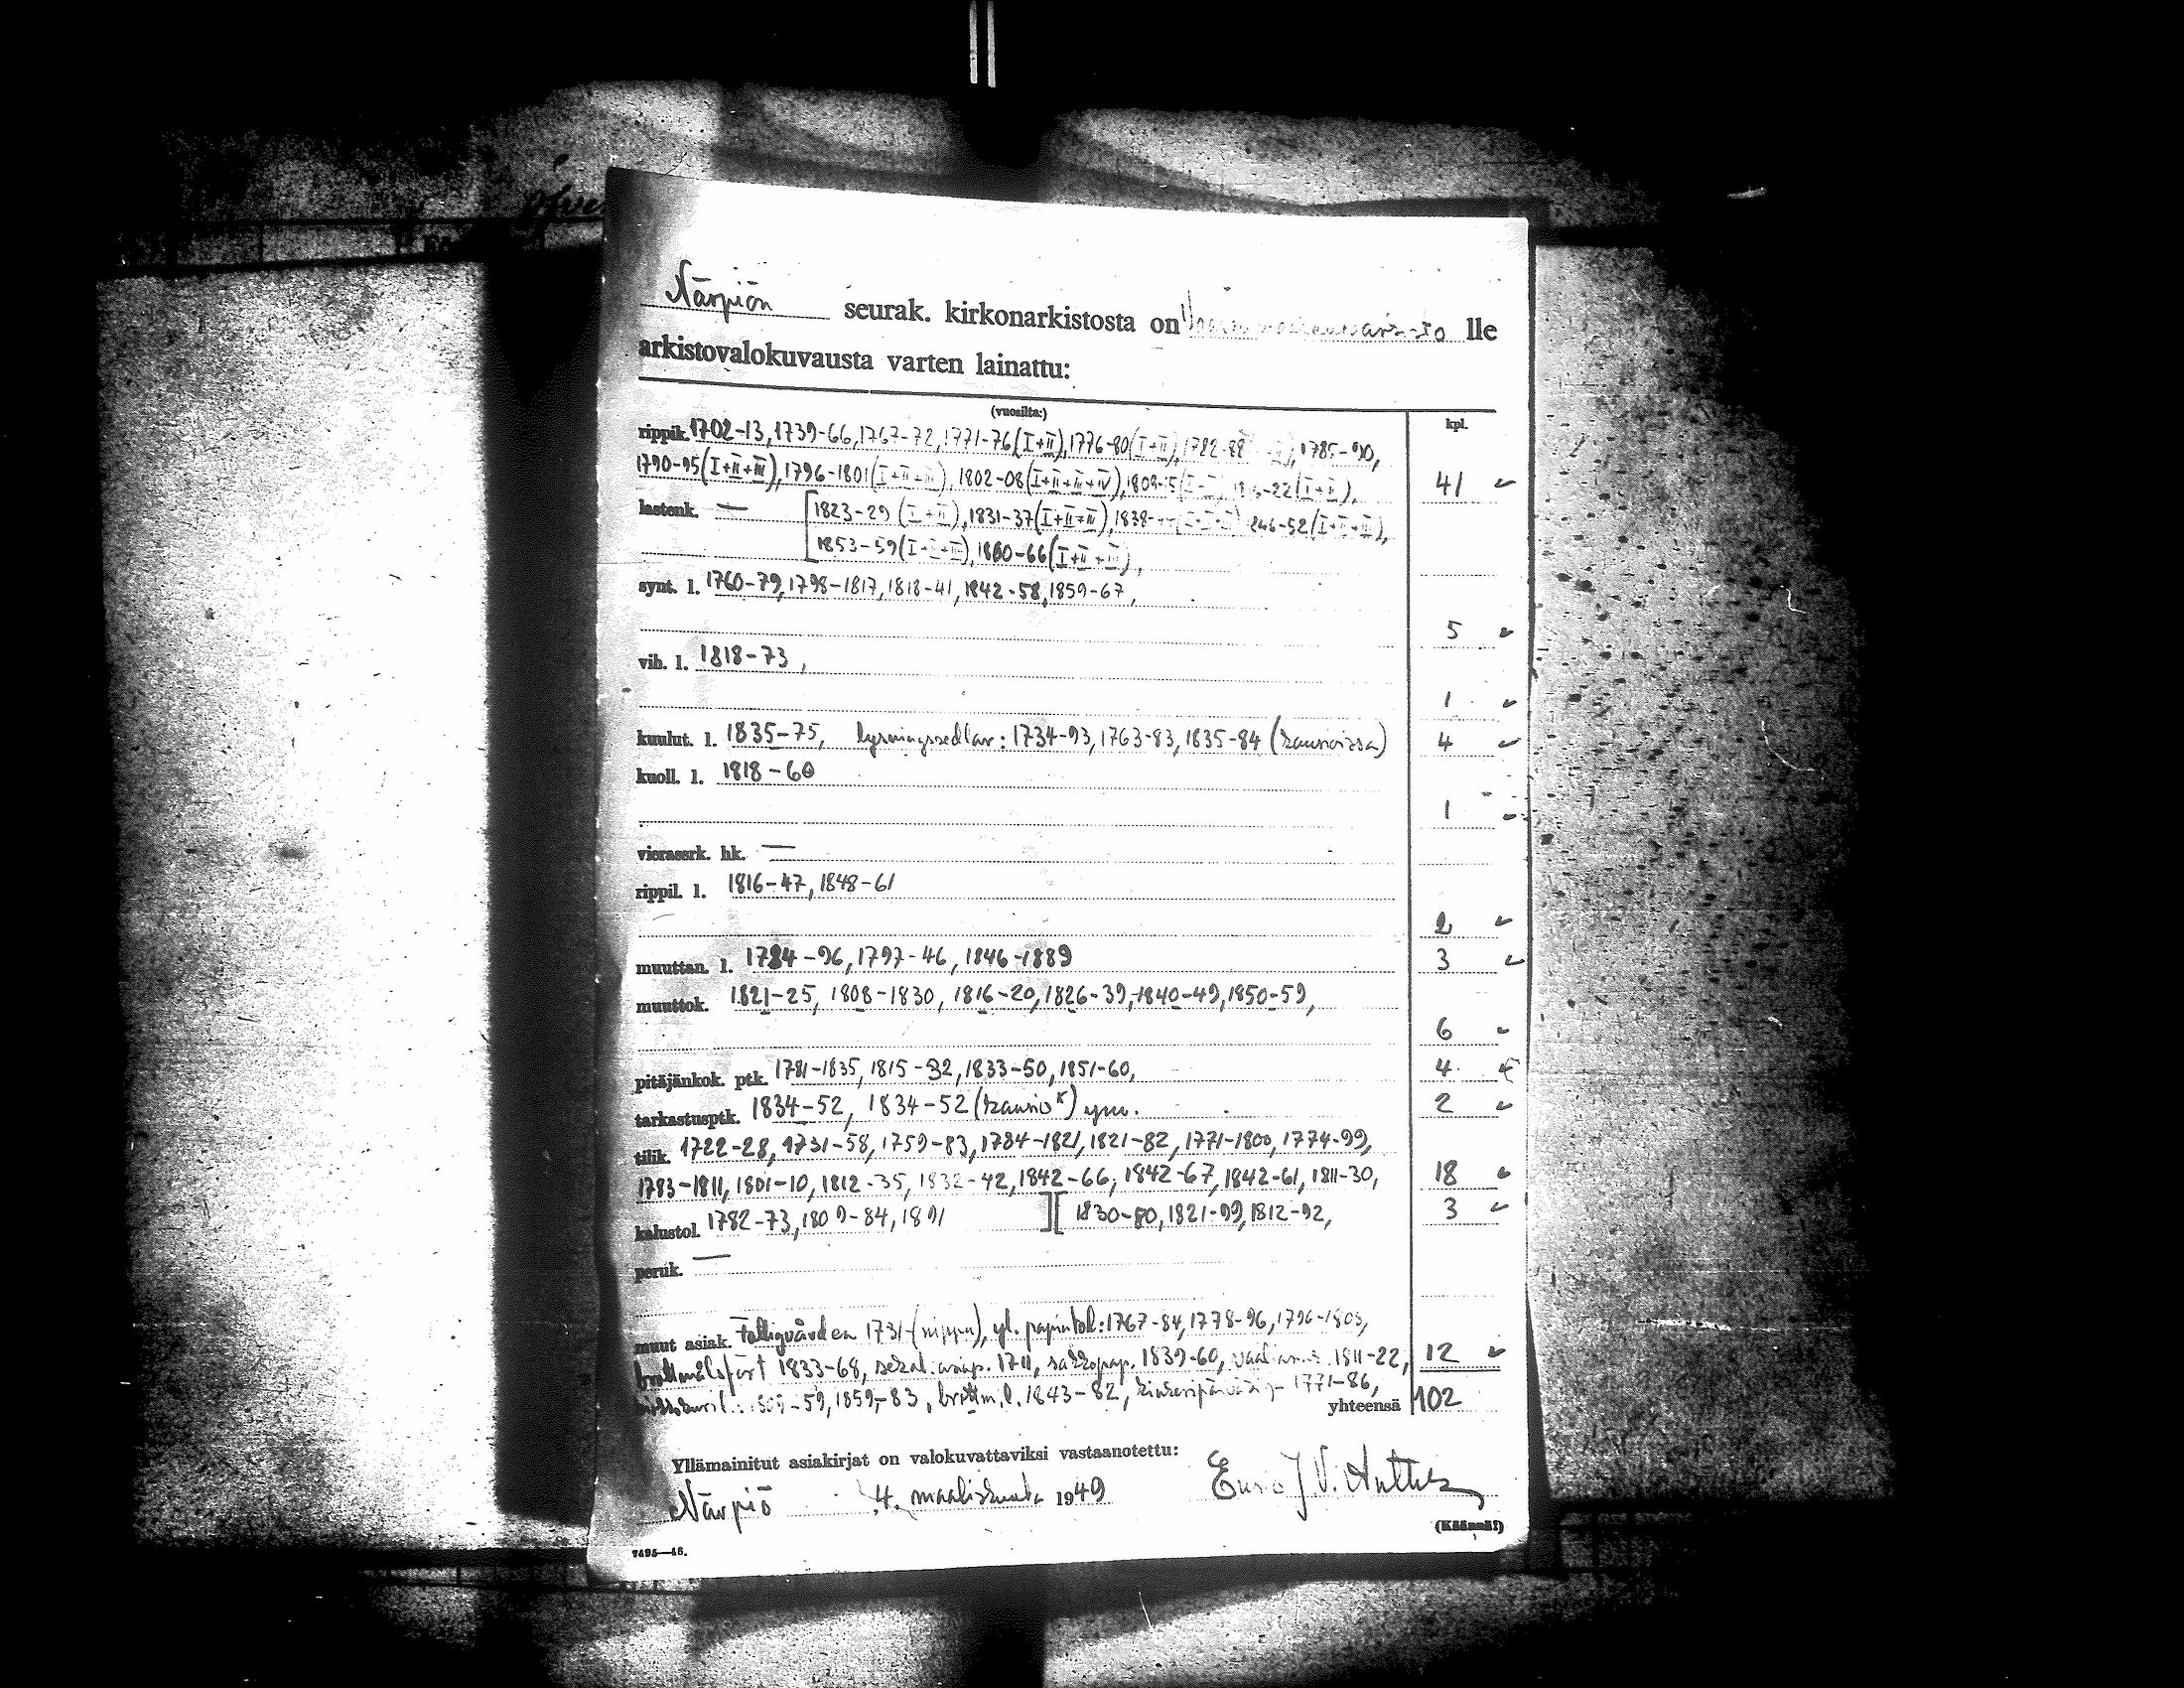 Närpiön seurak. kirkonarkistosta on lle
arkistovalokuvausta varten lainattu:
(vuosilta:) kpl.
rippik. 1702-13, 1739-66, 1767-72, 1771-76 (I+II), 1776-80 (I+II), 1782-88 1785-90,
1790-95 (I+II+III), 1796-1801 (I+II+III), 1802-08 (I+II+III+IV), 1809-15 1816-22 (I+II), 41
lastenk. — [1823-29 (I+II), 1831-37 (I+II+III), 1838- 1846-52 (I+II+III),
1853-59 (I+II+III), 1860-66 (I+II+III),
synt. l. 1760-79, 1798-1817, 1818-41, 1842-58, 1859-67,
5
vih. l. 1818-73,
1
kuulut. l. 1835-75, lysningssedlar: 1734-93, 1763-83, 1835-84 (kansioissa) 4
kuoll. l. 1818-60
1
vierassrk. hk. —
rippil. l. 1816-47, 1848-61
2
muuttan. l. 1784-96, 1797-46, 1846-1889 3
muuttok. 1821-25, 1808-1830, 1816-20, 1826-39, 1840-49, 1850-59,
6
pitäjänkok. ptk. 1781-1835, 1815-32, 1833-50, 1851-60, 4
tarkastusptk. 1834-52, 1834-52 (kansio) ym. 2
tilik. 1722-28, 1731-58, 1759-83, 1784-1821, 1821-82, 1771-1800, 1774-99,
1783-1811, 1801-10, 1812-35, 1832-42, 1842-66, 1842-67, 1842-61, 1811-30, 18
kalustol. 1782-73, 1809-84, 1891 ][ 1830-80, 1821-99, 1812-92, 3
peruk. —
muut asiak. Fattigvården 1731- (nippu), yl. 1767-84, 1778-96, 1796-1803,
1833-68, sekal. asiap. 1711, sakkopap. 1839-60, 1811-22, 12
-59, 1859-83, brottm. l. 1843-82, 1771-86,
yhteensä 102
Yllämainitut asiakirjat on valokuvattaviksi vastaanotettu:
Närpiö 4. maaliskuuta 1949
(Käännä!)
7495—46.